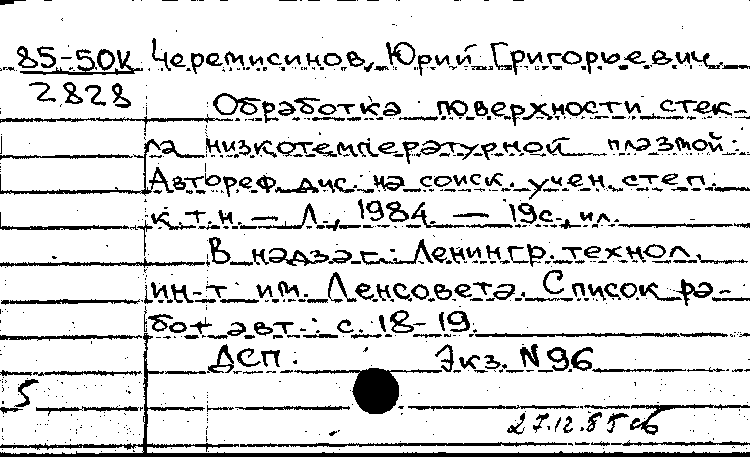 85-50К Черемисинов, Юрий Григорьевич.
2828
Обработка поверхности стек-
ла низкотемпературной плазмой:
Автореф. дис. на соиск. учен. степ.
к.т.н. — Л., 1984. — 19с., ил.
В надзаг.: Ленингр. технол.
ин-т им. Ленсовета. Список ра-
бот авт.: с. 18-19.
ДСП. Экз. N 96
5
27.12.85